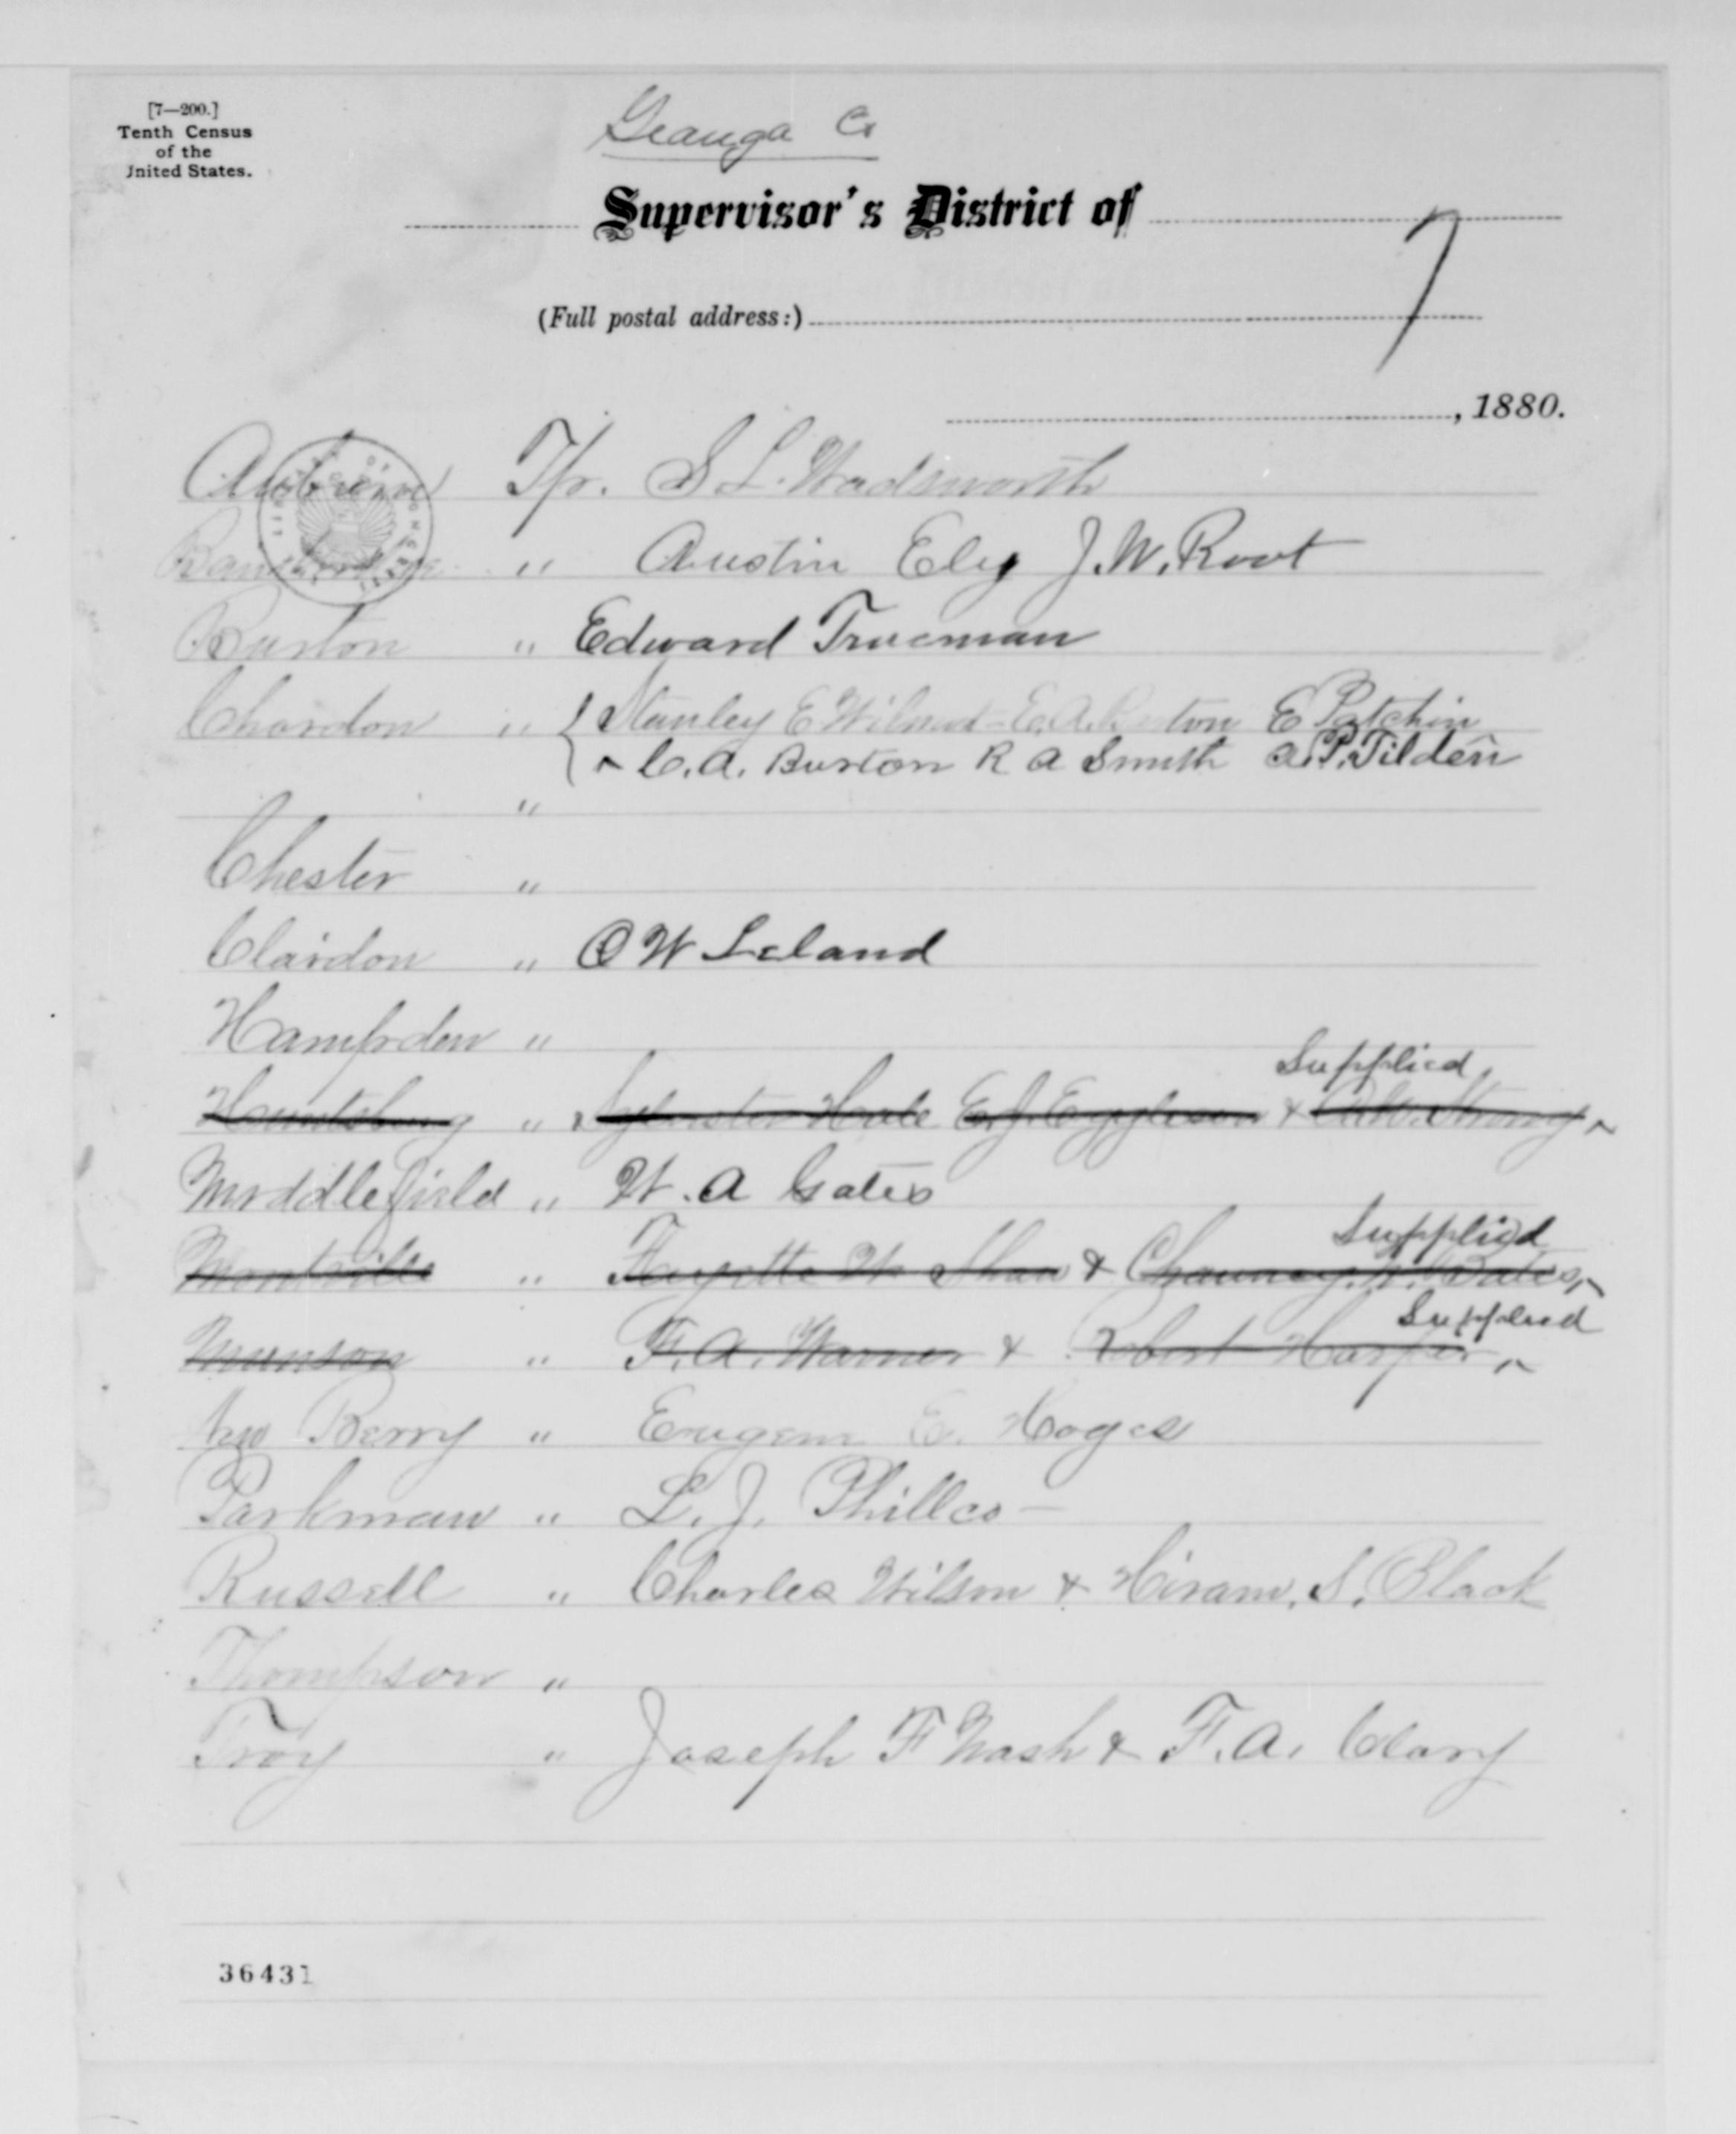 [7—200.]
Tenth Census
of the
United States.
Geauga Co
Supervisor's District of
7
(Full postal address:)
, 1880.
Auburn Tp. S L. Wadsworth
" Austin Ely J. W. Root
Burton " Edward Trueman
Chardon " Stanley E Wilmot - E. A. Burton E Patchin
C. A. Burton R A Smith A. P. Tilden
"
Chester "
Claridon " O W Leland
Hampden "
Supplied
Huntsburg " Sylvester Hale E. J. Eggleson & Strong
Middlefield " W. A Gates
Supplied
Montville " Fayette W Shaw & Chauncey Bates
Supplied
Munson " F. A. Warner & Robert Harper
Berry " Eugene E. Hoges
Parkman " L. J. Phillco -
Russell " Charles Wilson & Hiram. S. Black
Thompson "
Troy " Joseph F Nash & F. A. Clary
36431